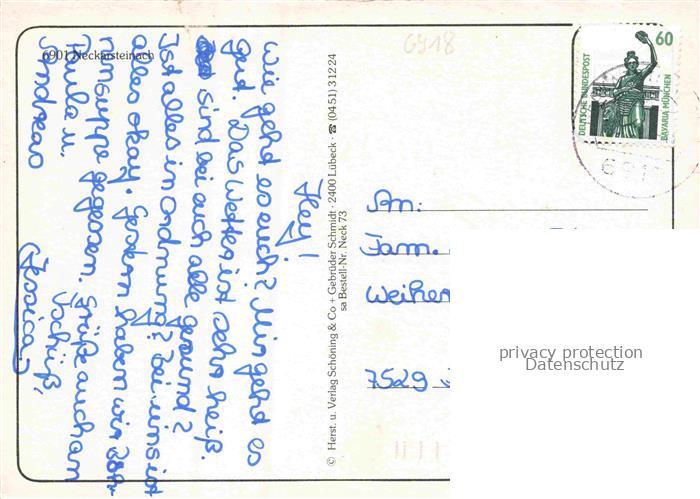 6901 Neckarsteinach
Hey!
Wie geht es euch? Mir geht es
gut. Das Wetter ist sehr heiß.
sind bei euch alle gesund?
Ist alles in Ordnung? Bei uns ist
alles okay. Gestern haben wir
gegessen. Grüße auch an
Paula u. Tschüß,
Andreas
Jessica
© Herst. u. Verlag Schöning & Co + Gebrüder Schmidt · 2400 Lübeck · ☎ (0451) 31224
sa Bestell-Nr. Neck 73
6918
60
DEUTSCHE BUNDESPOST
BAVARIA MÜNCHEN
An:
Fam.
7529
privacy protection
Datenschutz